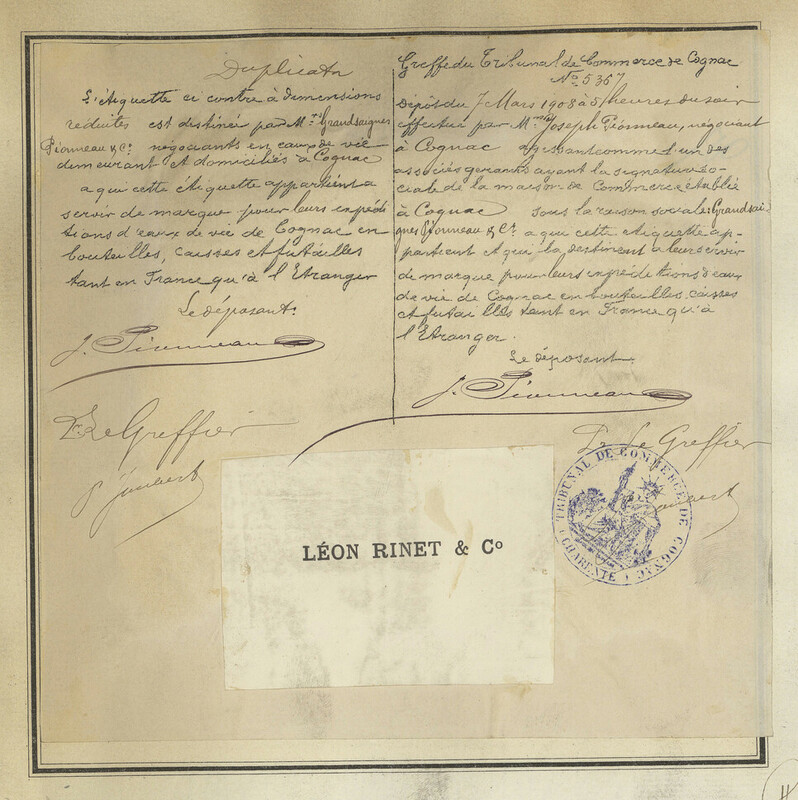 Duplicata
L'étiquette ci contre à dimensions
réduites est destinée par Mrs Grandsaignes
Pionneau & Co. négociants en eaux de vie
demeurant et domiciliés à Cognac
a qui cette étiquette appartient a
servir de marque pour leurs expédi
tions d'eaux de vie de Cognac en
bouteilles, caisses et futailles
tant en France qu'à l'Etranger
Le déposant:
J. Pionneau
Pr Le Greffier
P. Joubert
Greffe du Tribunal de Commerce de Cognac
No 5367
Dépôt du 7 Mars 1908 à 5 heures du soir
effectué par Mr Joseph Pionneau, négociant
à Cognac agissant comme l'un des
associés gerants ayant la signature so-
ciale de la maison de Commerce établie
à Cognac sous la raison sociale: Grandsai-
gnes Pionneau & Co. a qui cette étiquette ap-
partient et qui la destinent a leur servir
de marque pour leurs expéditions d'eaux
de vie de Cognac en bouteilles, caisses
et futailles tant en France qu'à
l'Etranger.
Le déposant.
J. Pionneau
Pr Le Greffier
TRIBUNAL DE COMMERCE DE COGNAC
(CHARENTE)
LÉON RINET & Co